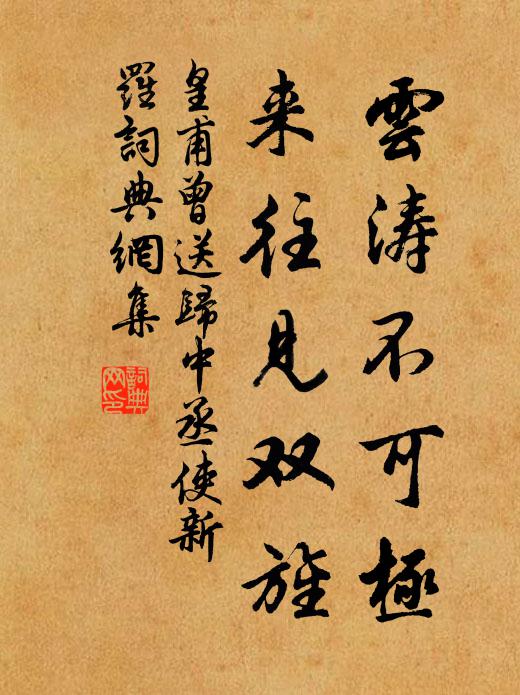 雲涛不可極
来往見双旌
皇甫曾送歸中丞使新
羅詞典網集
詞典
网印